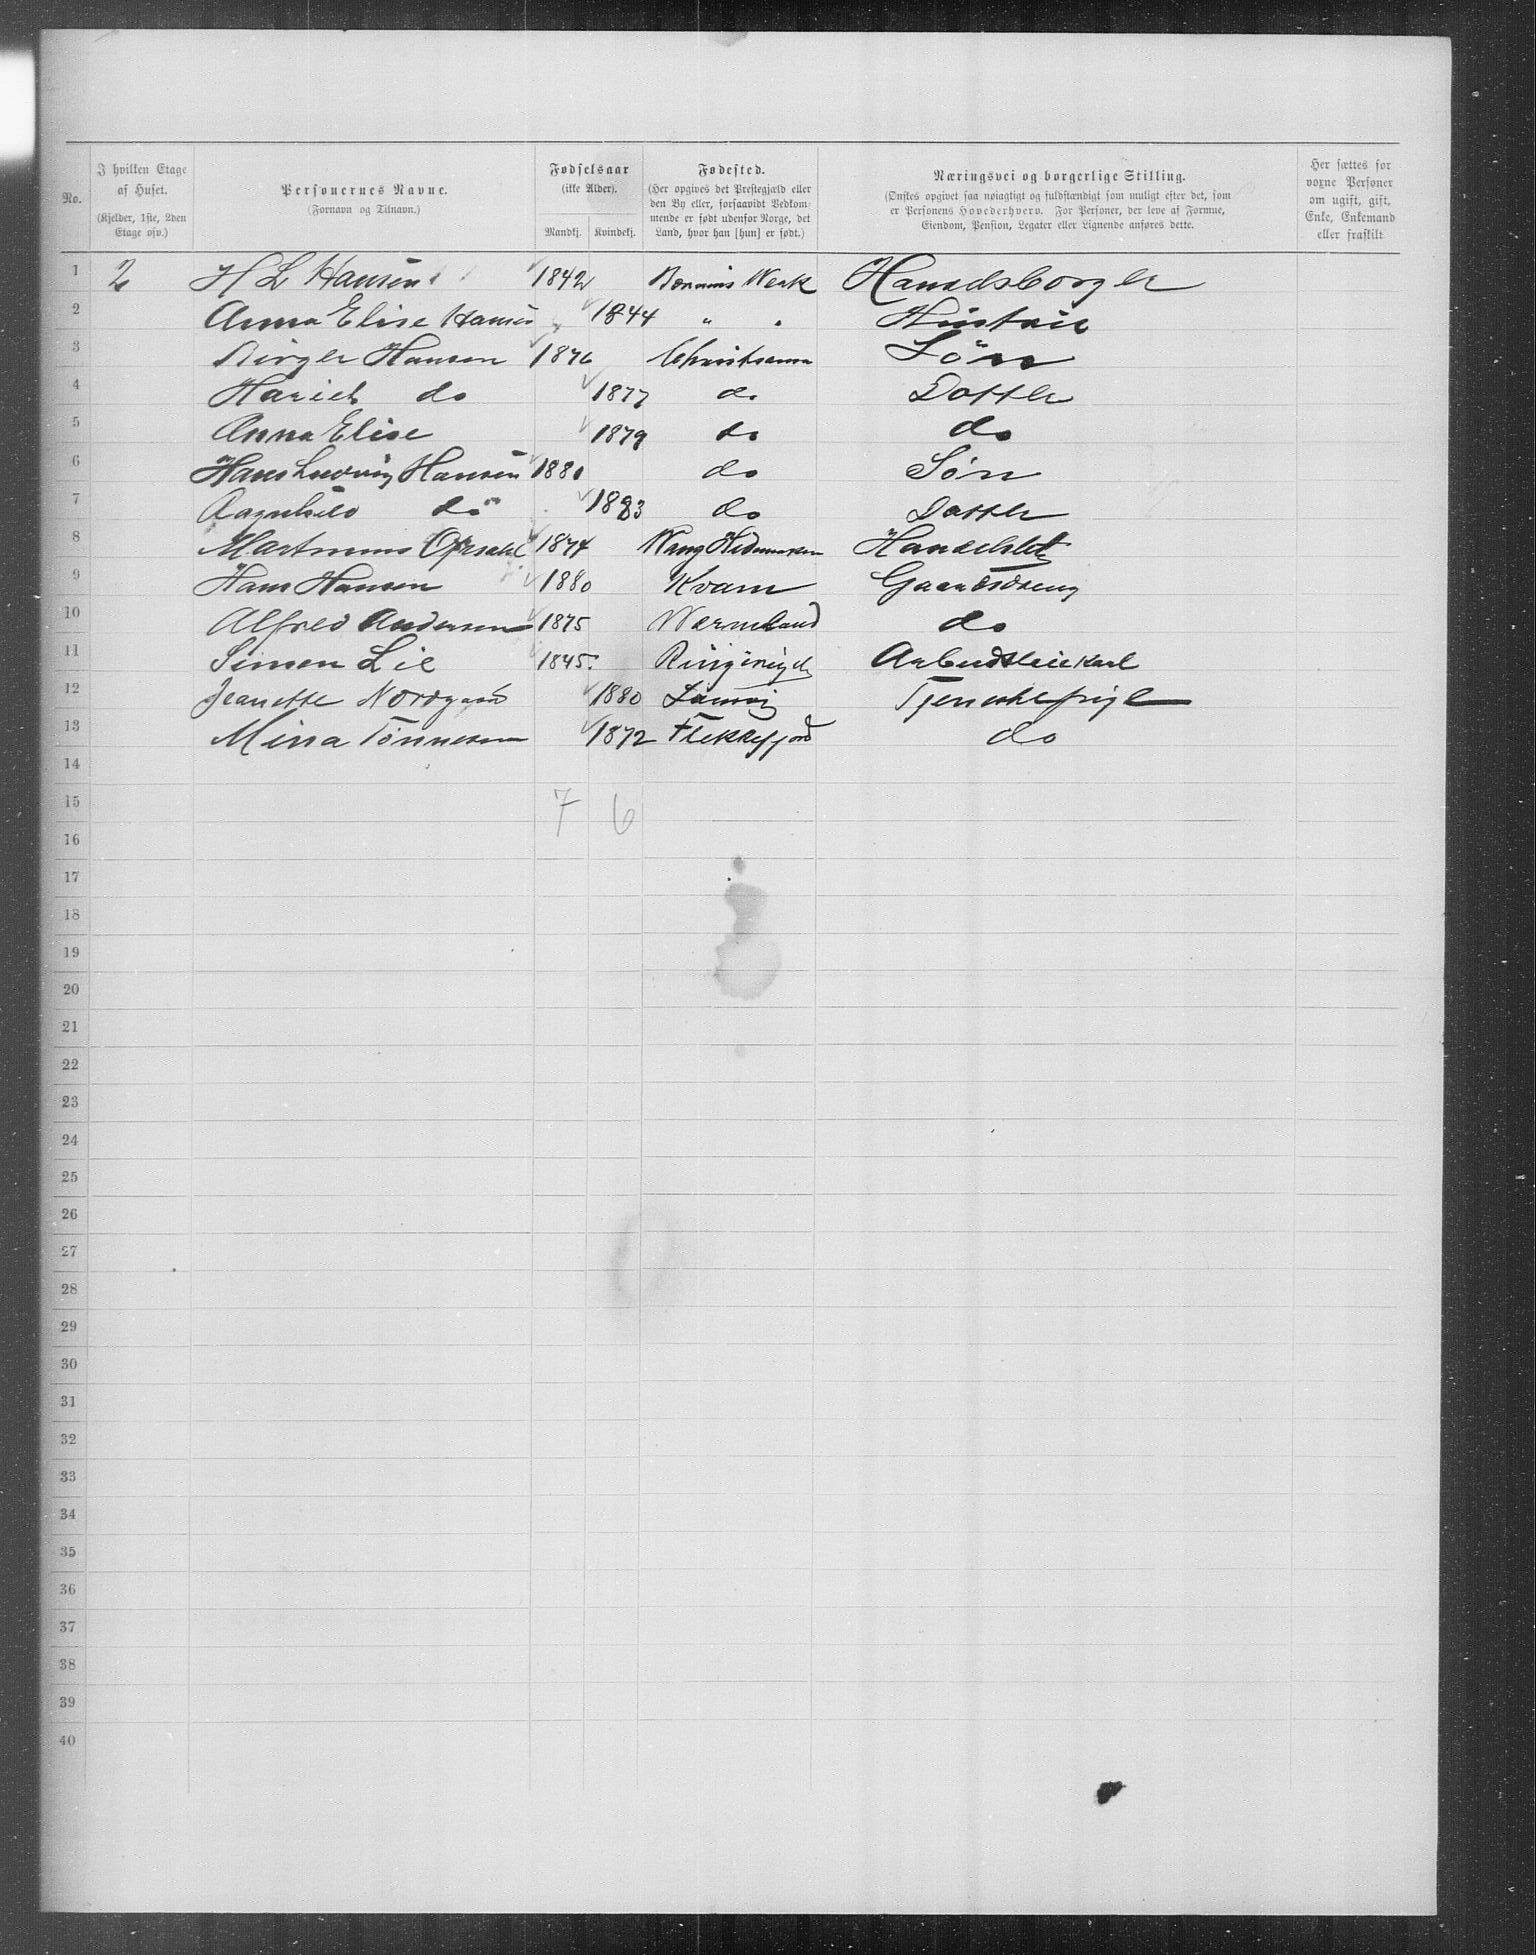 No.
I hvilken Etage af Huset.
(Kjelder, 1ste, 2den Etage osv.)
Personernes Navne.
(Fornavn og Tilnavn.)
Fødselsaar
(ikke Alder).
Mandkj. Kvindekj.
Fødested.
(Her opgives det Prestegjæld eller
den By eller, forsaavidt Vedkom-
mende er født udenfor Norge, det
Land, hvor han [hun] er født.)
Næringsvei og borgerlige Stilling.
(Ønskes opgivet saa nøiagtigt og fuldstændigt som muligt efter det, som
er Personens Hovederhverv. For Personer, der leve af Formue,
Eiendom, Pension, Legater eller Lignende anføres dette.
Her sættes for
voxne Personer
om ugift, gift,
Enke, Enkemand
eller fraskilt
1 2 H L Hansen 1842 Bærums Werk Handelsborger
2 Anna Elise Hansen 1844 " " Hustrue
3 Birger Hansen 1876 Christiania Søn
4 Hariet do 1877 do Datter
5 Anna Elise 1879 do do
6 Hans Ludvig Hansen 1881 do Søn
7 Ragnhild do 1883 do Datter
8 Martinius Opsahl 1874 Wang Hedemarken
9 Hans Hansen 1880 Kvam Gaardsdreng
10 Alfred Andersen 1875 Wermland do
11 Simen Lie 1845 Ringerige
12 Jeanette Nordgaard 1880 Tjenestepige
13 Mina Tønnesen 1872 Flekkefjord do
14
15 7 6
16
17
18
19
20
21
22
23
24
25
26
27
28
29
30
31
32
33
34
35
36
37
38
39
40